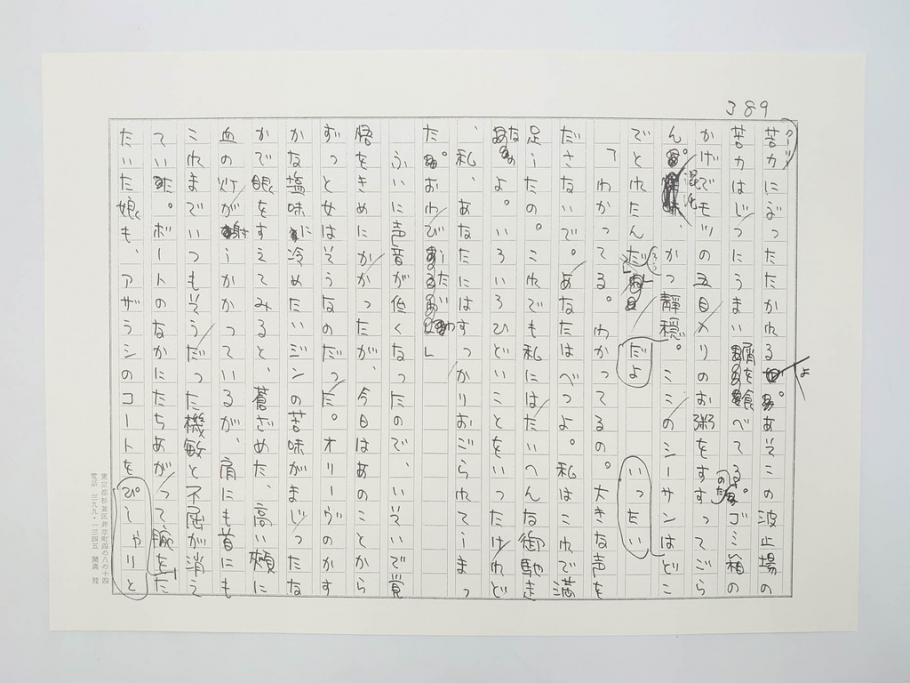 389
クーリー
苦力にぶったたかれるよ。あそこの波止場の
苦力はじつにうまい屑を食べてる。ゴミ箱の
かげでモツの五目入りのお粥をすすってごら
ん。混沌、かつ静穏。ここのシーサンはどこ
でとれたんだろ だよ いったい
「わかってる。わかってるの。大きな声を
ださないで。あなたはべつよ。私はこれで満
足したの。これでも私にはたいへんな御馳走
なのよ。いろいろひどいことをいったけれど
、私、あなたにはすっかりおごられてしまっ
た。おわびしたいわ」
ふいに声音が低くなったので、いそいで覚
悟をきめにかかったが、今日はあのことから
ずっと女はそうなのだった。オリーヴのかす
かな塩味に冷めたいジンの苦味がまじったな
かで眼をすえてみると、蒼ざめた、高い頬に
血の灯が射しかかっているが、肩にも首にも
これまでいつもそうだった機敏と不屈が消え
ていた。ボートのなかにたちあがって腕をた
たいた娘も、アザラシのコートをぴしゃりと
東京都杉並区井草町四の八の十四
電話 三九九・一三四五 開高 健